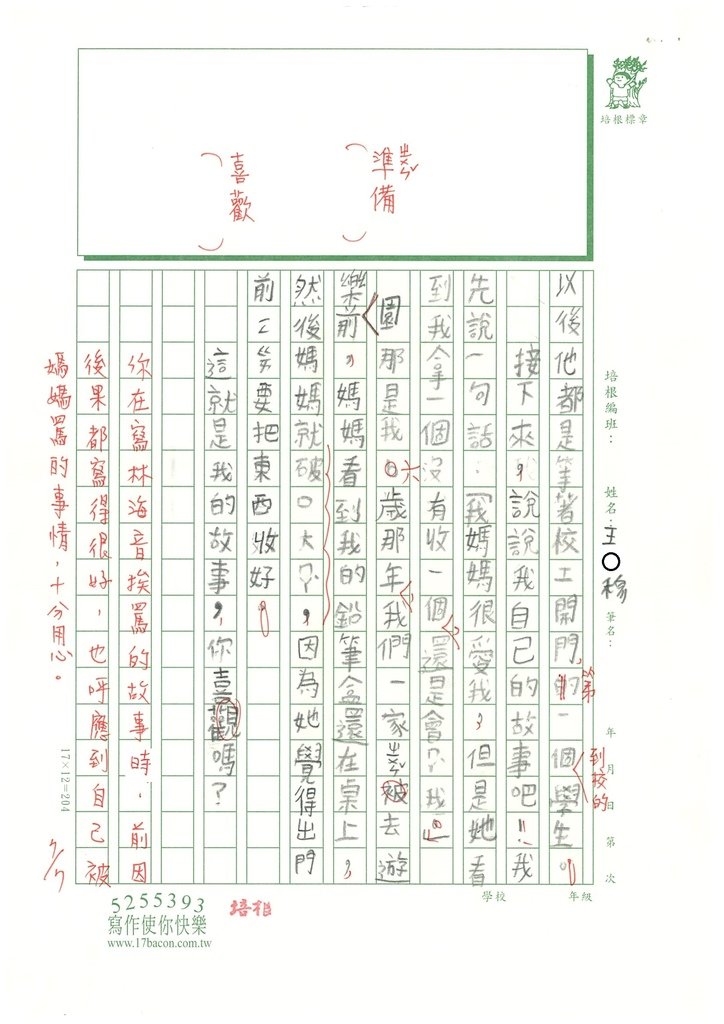 培根標章
準ㄓㄨㄣˇ備
喜歡
培根編班：
姓名：王○穆
筆名：
年 月 日 第 次
學校
年級
以後他都是等著校工開門，第一個到校的學生。
接下來，說說我自己的故事吧！！我
先說一句話：「我媽媽很愛我，但是她看
到我拿一個沒有收一個還是會ㄇㄚˋ我」。
園那是我六歲那年我們一家ㄓㄨㄣˇ被去遊
樂前，媽媽看到我的鉛筆盒還在桌上，
然後媽媽就破口大ㄇㄚˋ，因為她覺得出門
前ㄧˊ定要把東西收好。
這就是我的故事，你喜觀嗎？
你在寫林海音挨罵的故事時，前因
後果都寫得很好，也呼應到自己被
媽媽罵的事情，十分用心。
7/7
17×12=204
5255393
培根
寫作使你快樂
www.17bacon.com.tw